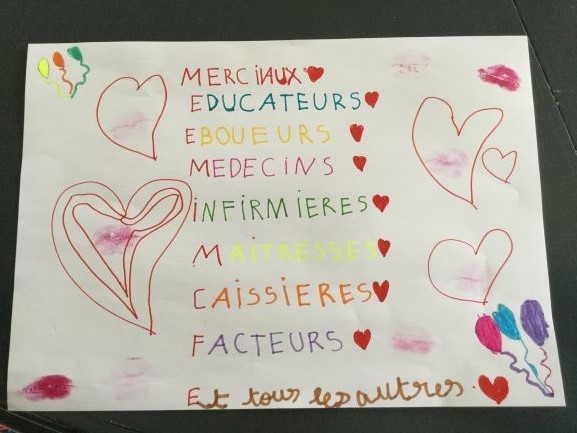 MERCI AUX
EDUCATEURS
EBOUEURS
MEDECINS
INFIRMIERES
MAITRESSES
CAISSIERES
FACTEURS
Et tous les autres.